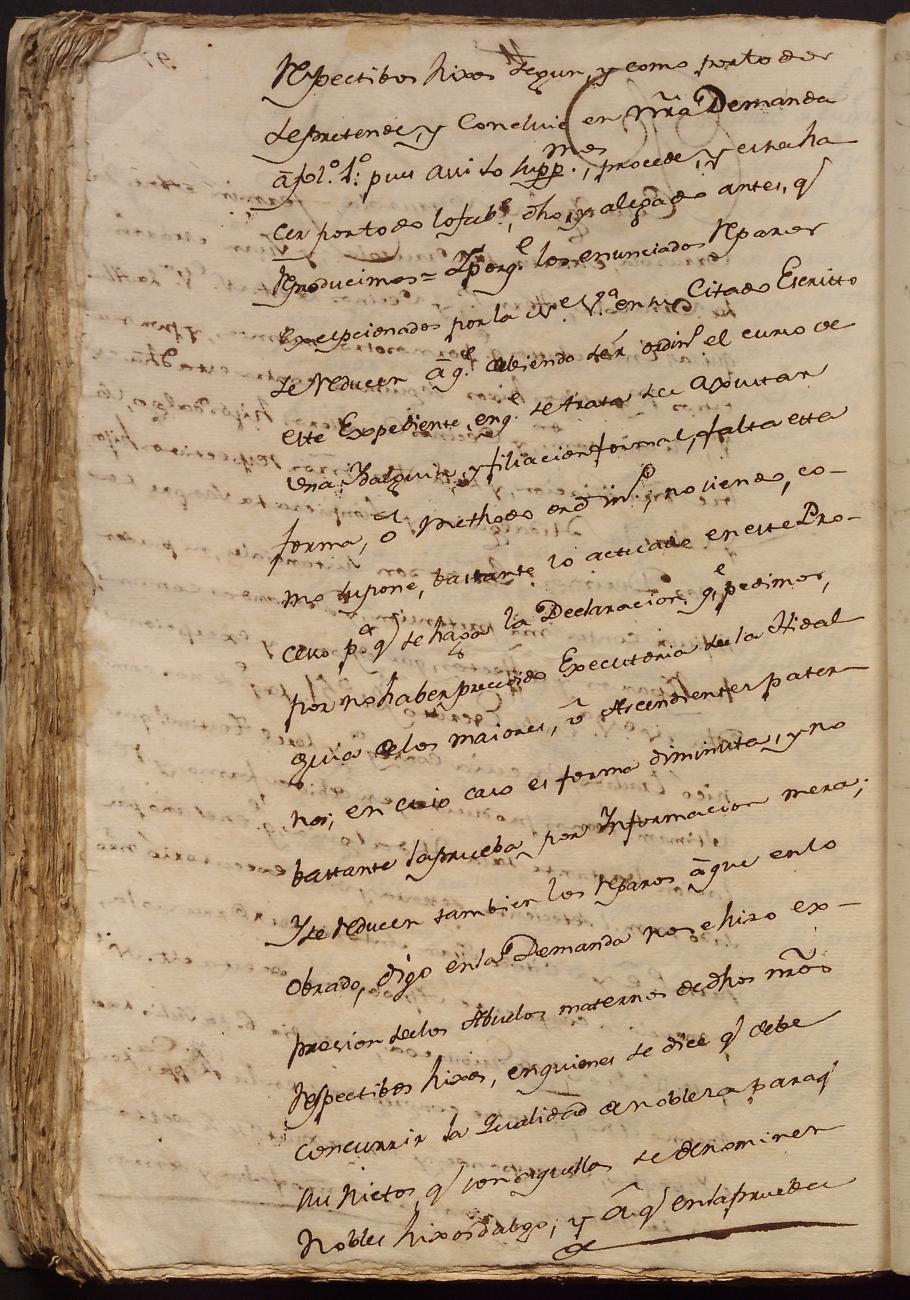 Respectibos hixos segun, y como por todo ser
se pretende, y Concluie en nrâ Demanda
â fol.º 1.º pues assi lo supp.mos, procede, y es de ha
cer por todo lo fab.e, dho, y alegado antes, q.e
Reproducimos = Y porq.e los enunciados Reparos
Excepcionados por la Vª en su Citado Escritto
se Reducen â q.e debiendo ser ordin.º el curso de
este Expediente, en q.e se trata de Apurar
una Hidalguia, y filiacion formal, falta esta
forma, ô Methodo ordin.º, no siendo, co-
mo supone, bastante lo actuado en este Pro-
ceso p.ª q.e se haga la Declaracion, q.e pedimos,
por no haber precedido Executoria de la Hidal
guia de los maiores, û Ascendientes pater
nos; en cuio caso es forma diminuta, y no
bastante la prueba por Informacion mera;
Y se reducen tambien los reparos â que en lo
Obrado, digo en la Demanda no se hizo ex-
presion de los Abuelos maternos de dhos nrôs
Respectibos hixos, en quienes se dice q.e debe
concurrir la Qualidad de nobleza para q.e
sus Nietos, q.e son aquellos se denominen
Nobles hixosdalgo; y â q.e en la prueba